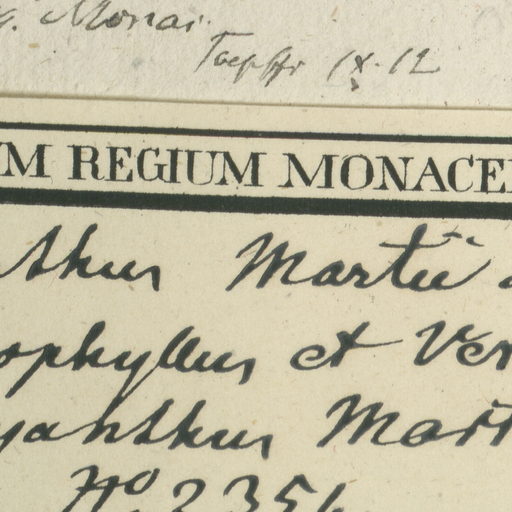 . Monac.
Toepffr IX. 12
M REGIUM MONACE
thus Martii
ophyllus et Ver
yanthus Mart
No. 2356